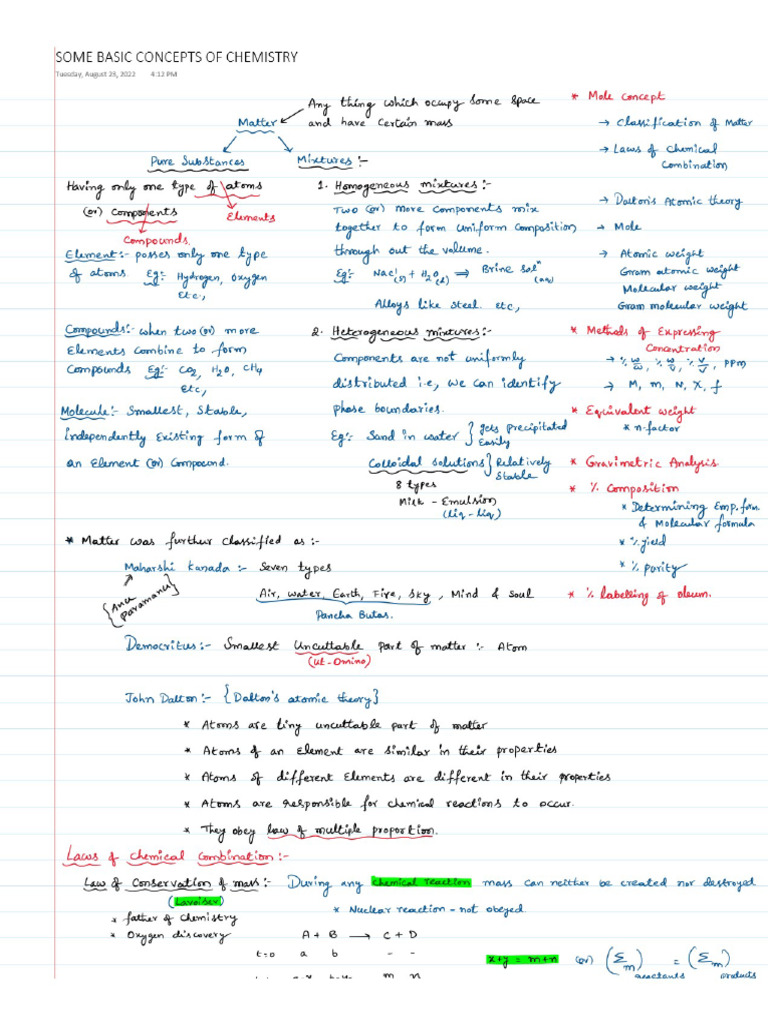 SOME BASIC CONCEPTS OF CHEMISTRY
Tuesday, August 23, 2022 4:12 PM
Matter
Any thing which occupy some space
and have certain mass
Pure Substances
Having only one type of atoms
(or) Components
Elements
Compounds.
Element:- posses only one type
of atoms Eg:- Hydrogen, Oxygen
Etc.,
Compounds:- when two (or) more
Elements combine to form
Compounds Eg:- CO2, H2O, CH4
Etc,
Molecule:- Smallest, Stable,
Independently Existing form of
an Element (or) Compound.
Mixtures:-
1. Homogeneous mixtures:-
Two (or) more components mix
together to form uniform composition
through out the volume.
Eg:- NaCl(s) + H2O(l) ⟹ Brine solⁿ (aq)
Alloys like steel. etc,
2. Heterogeneous mixtures:-
Components are not uniformly
distributed i.e, we can identify
phase boundaries.
Eg:- Sand in water } gets precipitated
Easily
Colloidal solutions } Relatively
Stable
8 types
Milk - Emulsion
(liq-liq)
* Mole concept
→ Classification of Matter
→ Laws of Chemical
Combination
→ Dalton's Atomic theory
→ Mole
→ Atomic weight
Gram atomic weight
Molecular weight
Gram molecular weight
* Methods of Expressing
Concentration
→ % w/w, % w/v, % v/v, PPM
→ M, m, N, X, f
* Equivalent weight
* n-factor
* Gravimetric Analysis
* % Composition
* Determining Emp.form
& Molecular formula
* % yield
* % purity
* % labelling of oleum.
* Matter was further classified as :-
Maharshi Kanada :- Seven types
{Anu Paramanu}
Air, water, Earth, Fire, Sky, Mind & Soul
Pancha Butas.
Democritus:- Smallest Uncuttable part of matter :- Atom
(ut-Omino)
John Dalton:- {Dalton's atomic theory}
* Atoms are tiny uncuttable part of matter
* Atoms of an Element are similar in their properties
* Atoms of different Elements are different in their properties
* Atoms are responsible for chemical reactions to occur.
* They obey law of multiple proportion.
Laws of Chemical Combination:-
Law of Conservation of mass:- During any chemical reaction mass can neither be created nor destroyed
(Lavoiser)
* Nuclear reaction - not obeyed
* father of chemistry
* Oxygen discovery
A + B → C + D
t=0 a b - -
x+y = m+n (or) (Σm)reactants = (Σm)products
m n